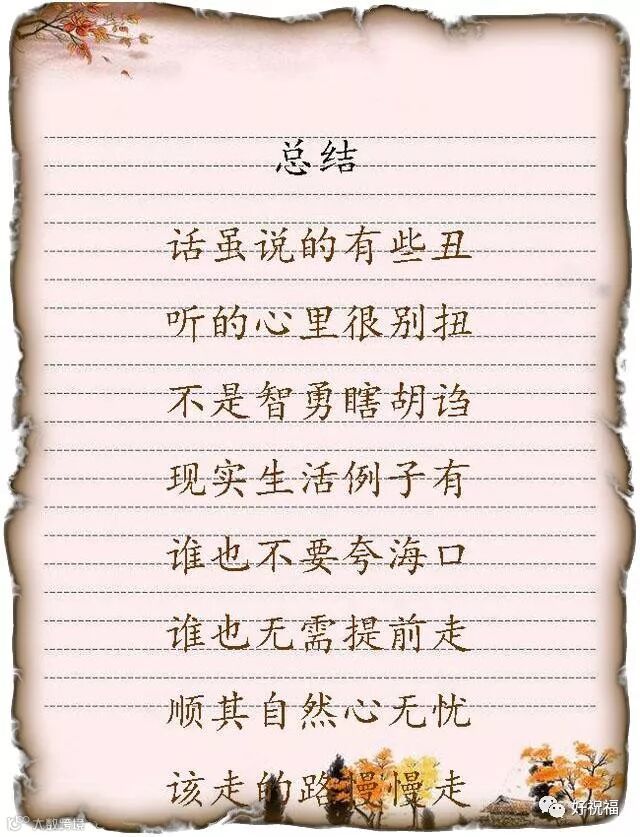 总结
话虽说的有些丑
听的心里很别扭
不是智勇瞎胡诌
现实生活例子有
谁也不要夸海口
谁也无需提前走
顺其自然心无忧
该走的路慢慢走
好祝福
大数跨境